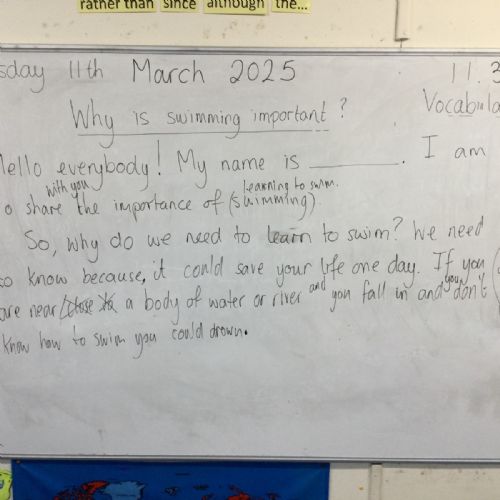 rather than since although the...
sday 11th March 2025 11.3
Why is swimming important?
Vocabula
Hello everybody! My name is ________. I am
with you learning to swim.
to share the importance of (swimming).
So, why do we need to learn to swim? We need
to know because, it could save your life one day. If you
and you
are near/close to a body of water or river you fall in and don't
know how to swim you could drown.